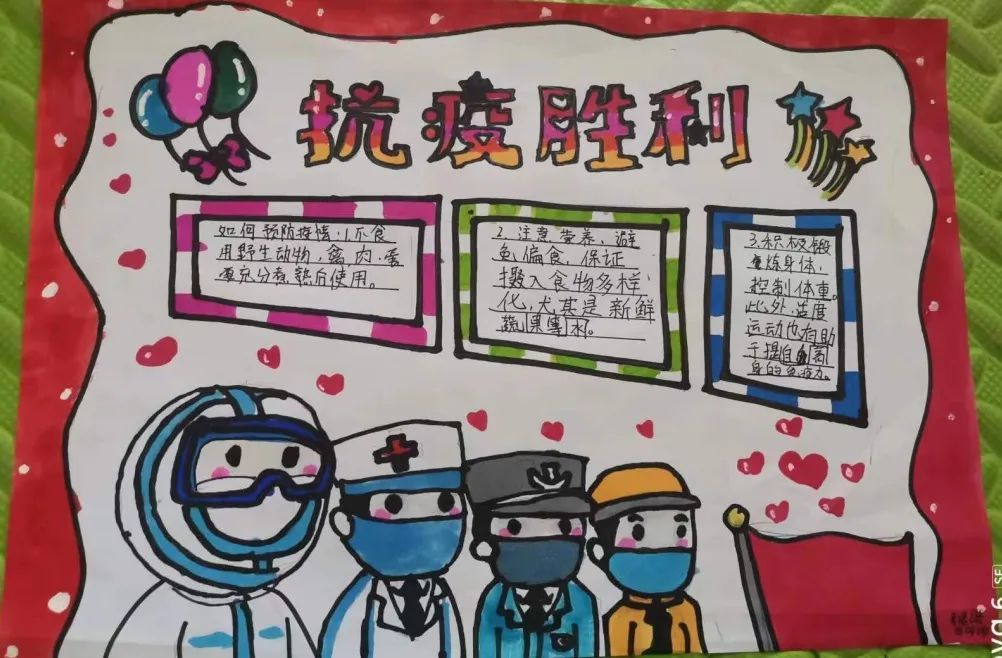 抗疫胜利
如何预防疫情:1.不食
用野生动物,禽肉,蛋
要充分煮熟后使用。
2.注意营养,避
免偏食,保证
摄入食物多样
化,尤其是新鲜
蔬果薯水。
3.积极锻
炼身体,
控制体重。
此外,适度
运动也有助
于提自高
身的免疫力。